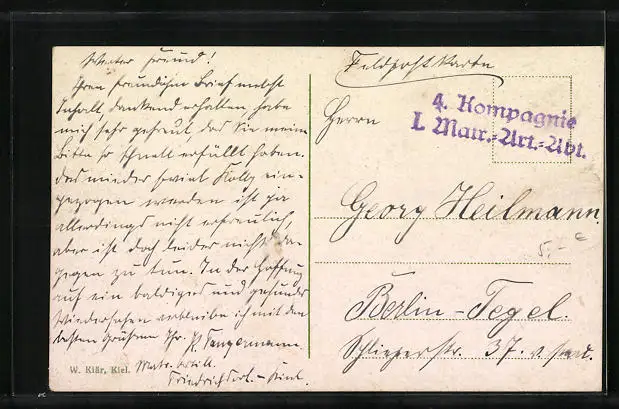 Werter Freund!
Ihren freundlichen Brief nebst
Inhalt, dankend erhalten habe
mich sehr gefreut, das Sie meine
Bitte so schnell erfüllt haben.
Das wieder soviel Kolleg. ein-
gezogen werden ist ja
allerdings nicht erfreulich,
aber ist doch leider nicht da-
gegen zu tun. In der Hoffnung
auf ein baldiges und gesundes
Wiedersehen verbleibe ich mit den
besten Grüßen Ihr
Matr. Artill.
Friedrichsort - Kiel.
W. Klär, Kiel.
Feldpostkarte
4. Kompagnie
I. Matr.-Art.-Abt.
Herrn
Georg Heilmann.
Berlin-Tegel.
Schlieperstr. 37.